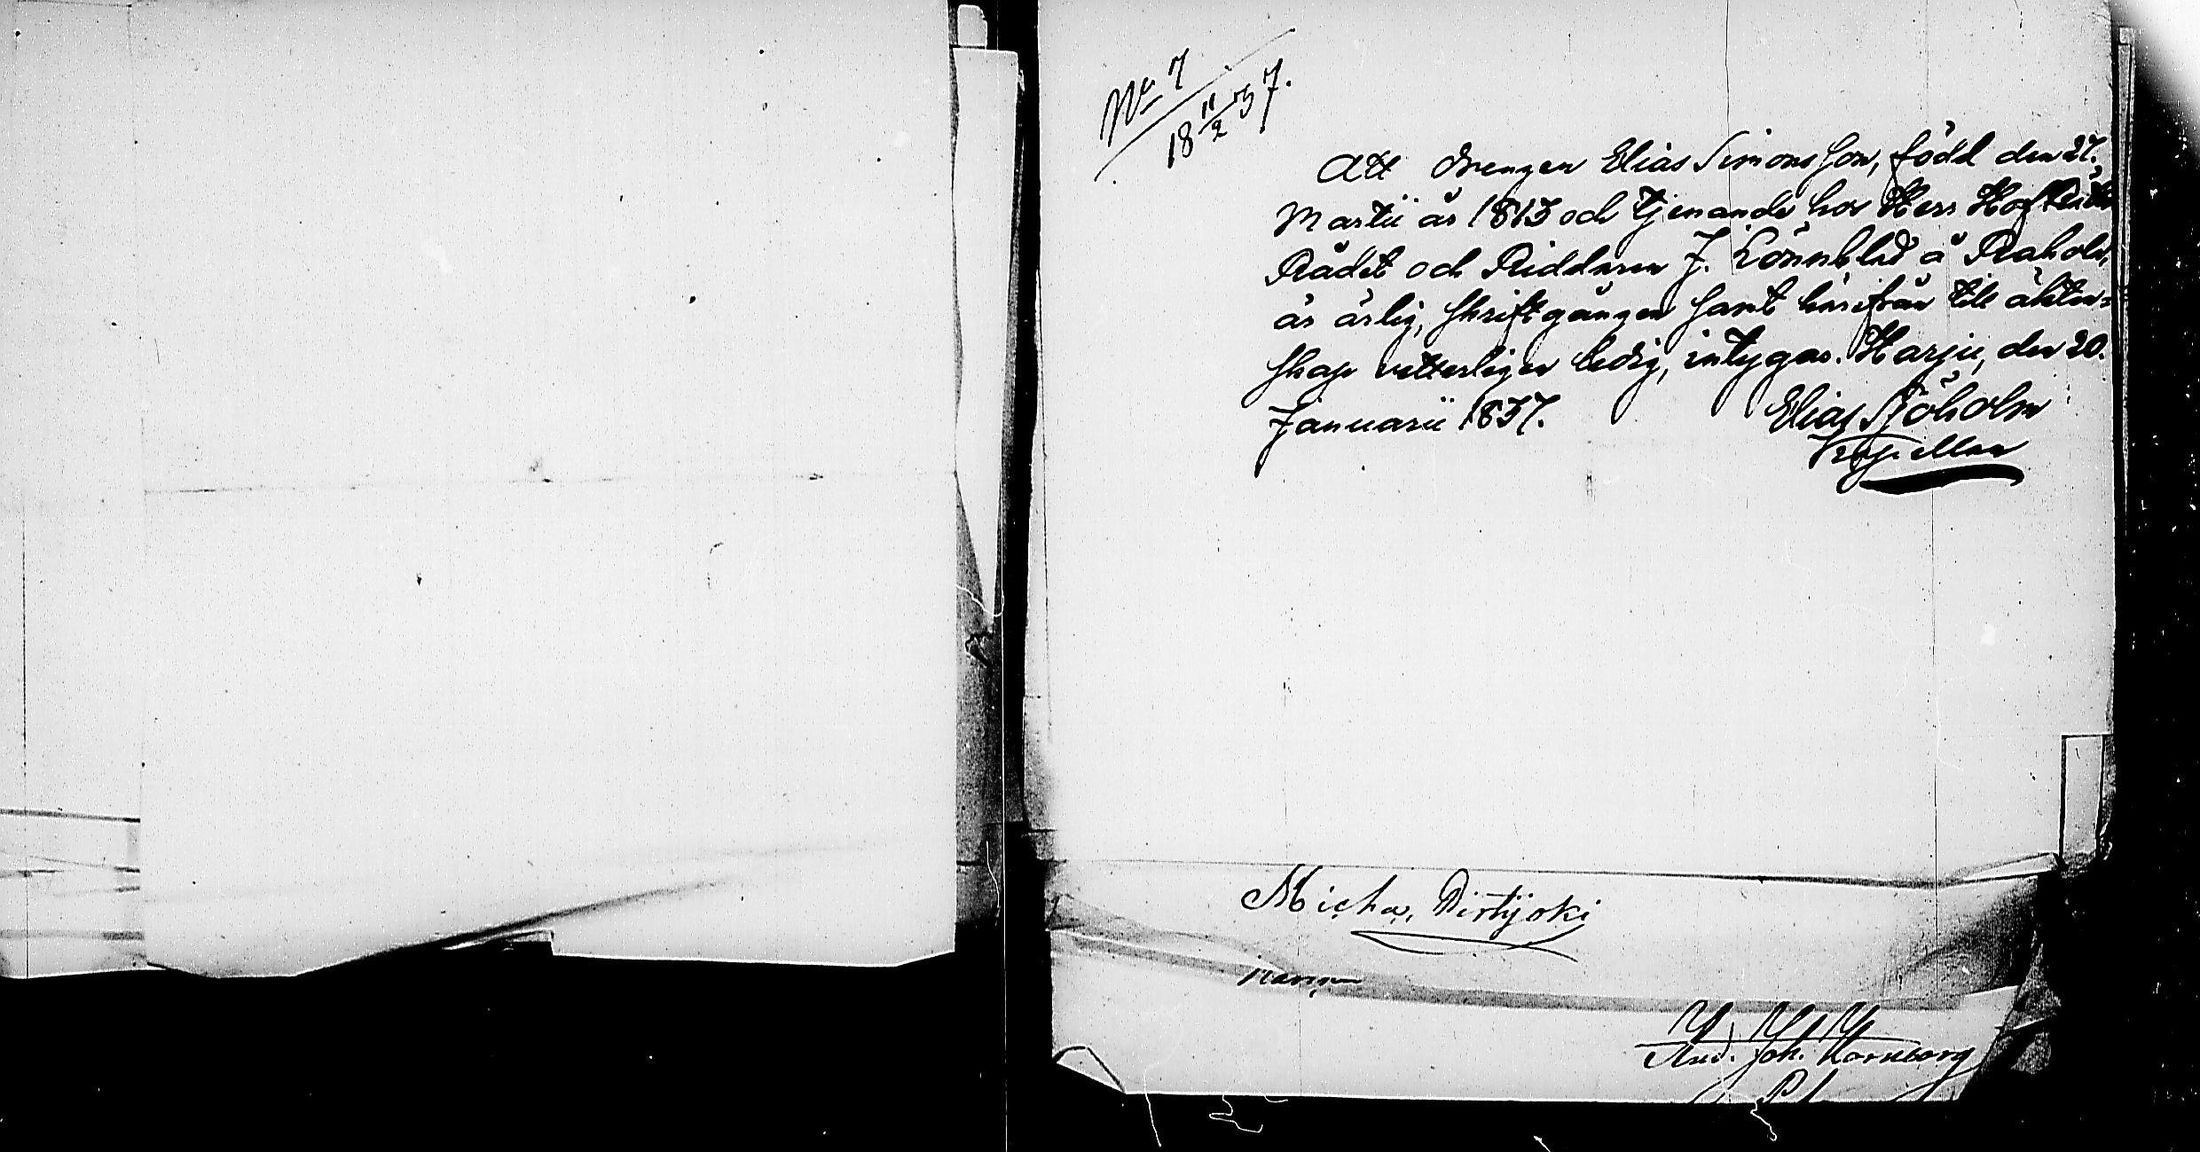 No 7
18 11/2 37.
Att Drengen Elias Simonsson, född den 27.
Martii år 1813 och tjenande hos Herr Hof Rätts
Rådet och Riddaren J. Lönnblad å Raholm,
är ärlig, skriftgången samt härifrån till äkten=
skap vetterligen ledig, intygas. Harju, den 20.
Januarii 1837.
Elias Sjöholm
Kapellan
And. Joh.